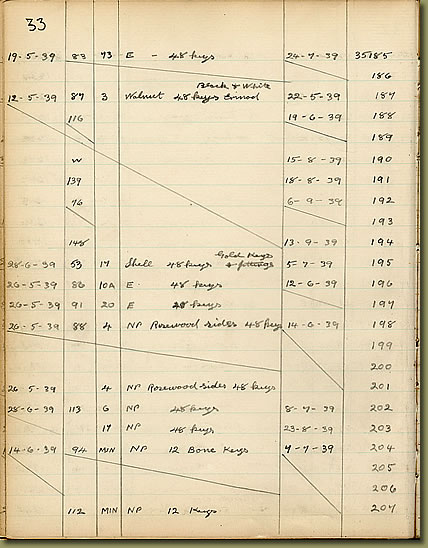 33
19-5-39 83 73 E - 48 keys 24-7-39 35185
186
Black & White
12-5-39 87 3 Walnut 48 keys 22-5-39 187
116 19-6-39 188
189
W 15-8-39 190
139 18-8-39 191
76 6-9-39 192
193
148 13-9-39 194
Gold Keys
28-6-39 53 17 Shell 48 keys & fittings 5-7-39 195
26-5-39 86 10A E. 48 keys 12-6-39 196
26-5-39 91 20 E 48 keys 197
26-5-39 88 4 NP Rosewood sides 48 keys 14-6-39 198
199
200
26 5-39 4 NP Rosewood sides 48 keys 201
28-6-39 113 6 NP 48 keys 8-7-39 202
17 NP 48 keys 23-8-39 203
14-6-39 94 MIN NP 12 Bone Keys 4-7-39 204
205
206
112 MIN NP 12 Keys 207